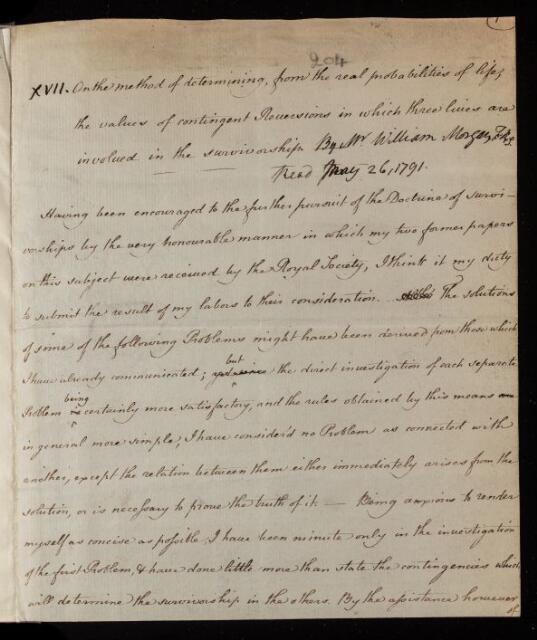 1
204
XVII. On the method of determining, from the real probabilities of life,
the values of contingent Reversions in which three lives are
involved in the survivorship. By Mr. William Morgan, F.R.S.
Read May 26, 1791.
Having been encouraged to the further pursuit of the Doctrine of survi-
vorships by the very honourable manner in which my two former papers
on this subject were received by the Royal Society, I think it my duty
to submit the result of my labors to their consideration. The solutions
of some of the following Problems might have been derived from those which
I have already communicated; but the direct investigation of each separate
Problem being certainly more satisfactory, and the rules obtained by this means
in general more simple, I have consider'd no Problem as connected with
another, except the relation between them either immediately arises from the
solution, or is necessary to prove the truth of it. — Being anxious to render
myself as concise as possible I have been minute only in the investigation
of the first Problem, & have done little more than state the contingencies which
will determine the survivorship in the others. By the assistance however
of